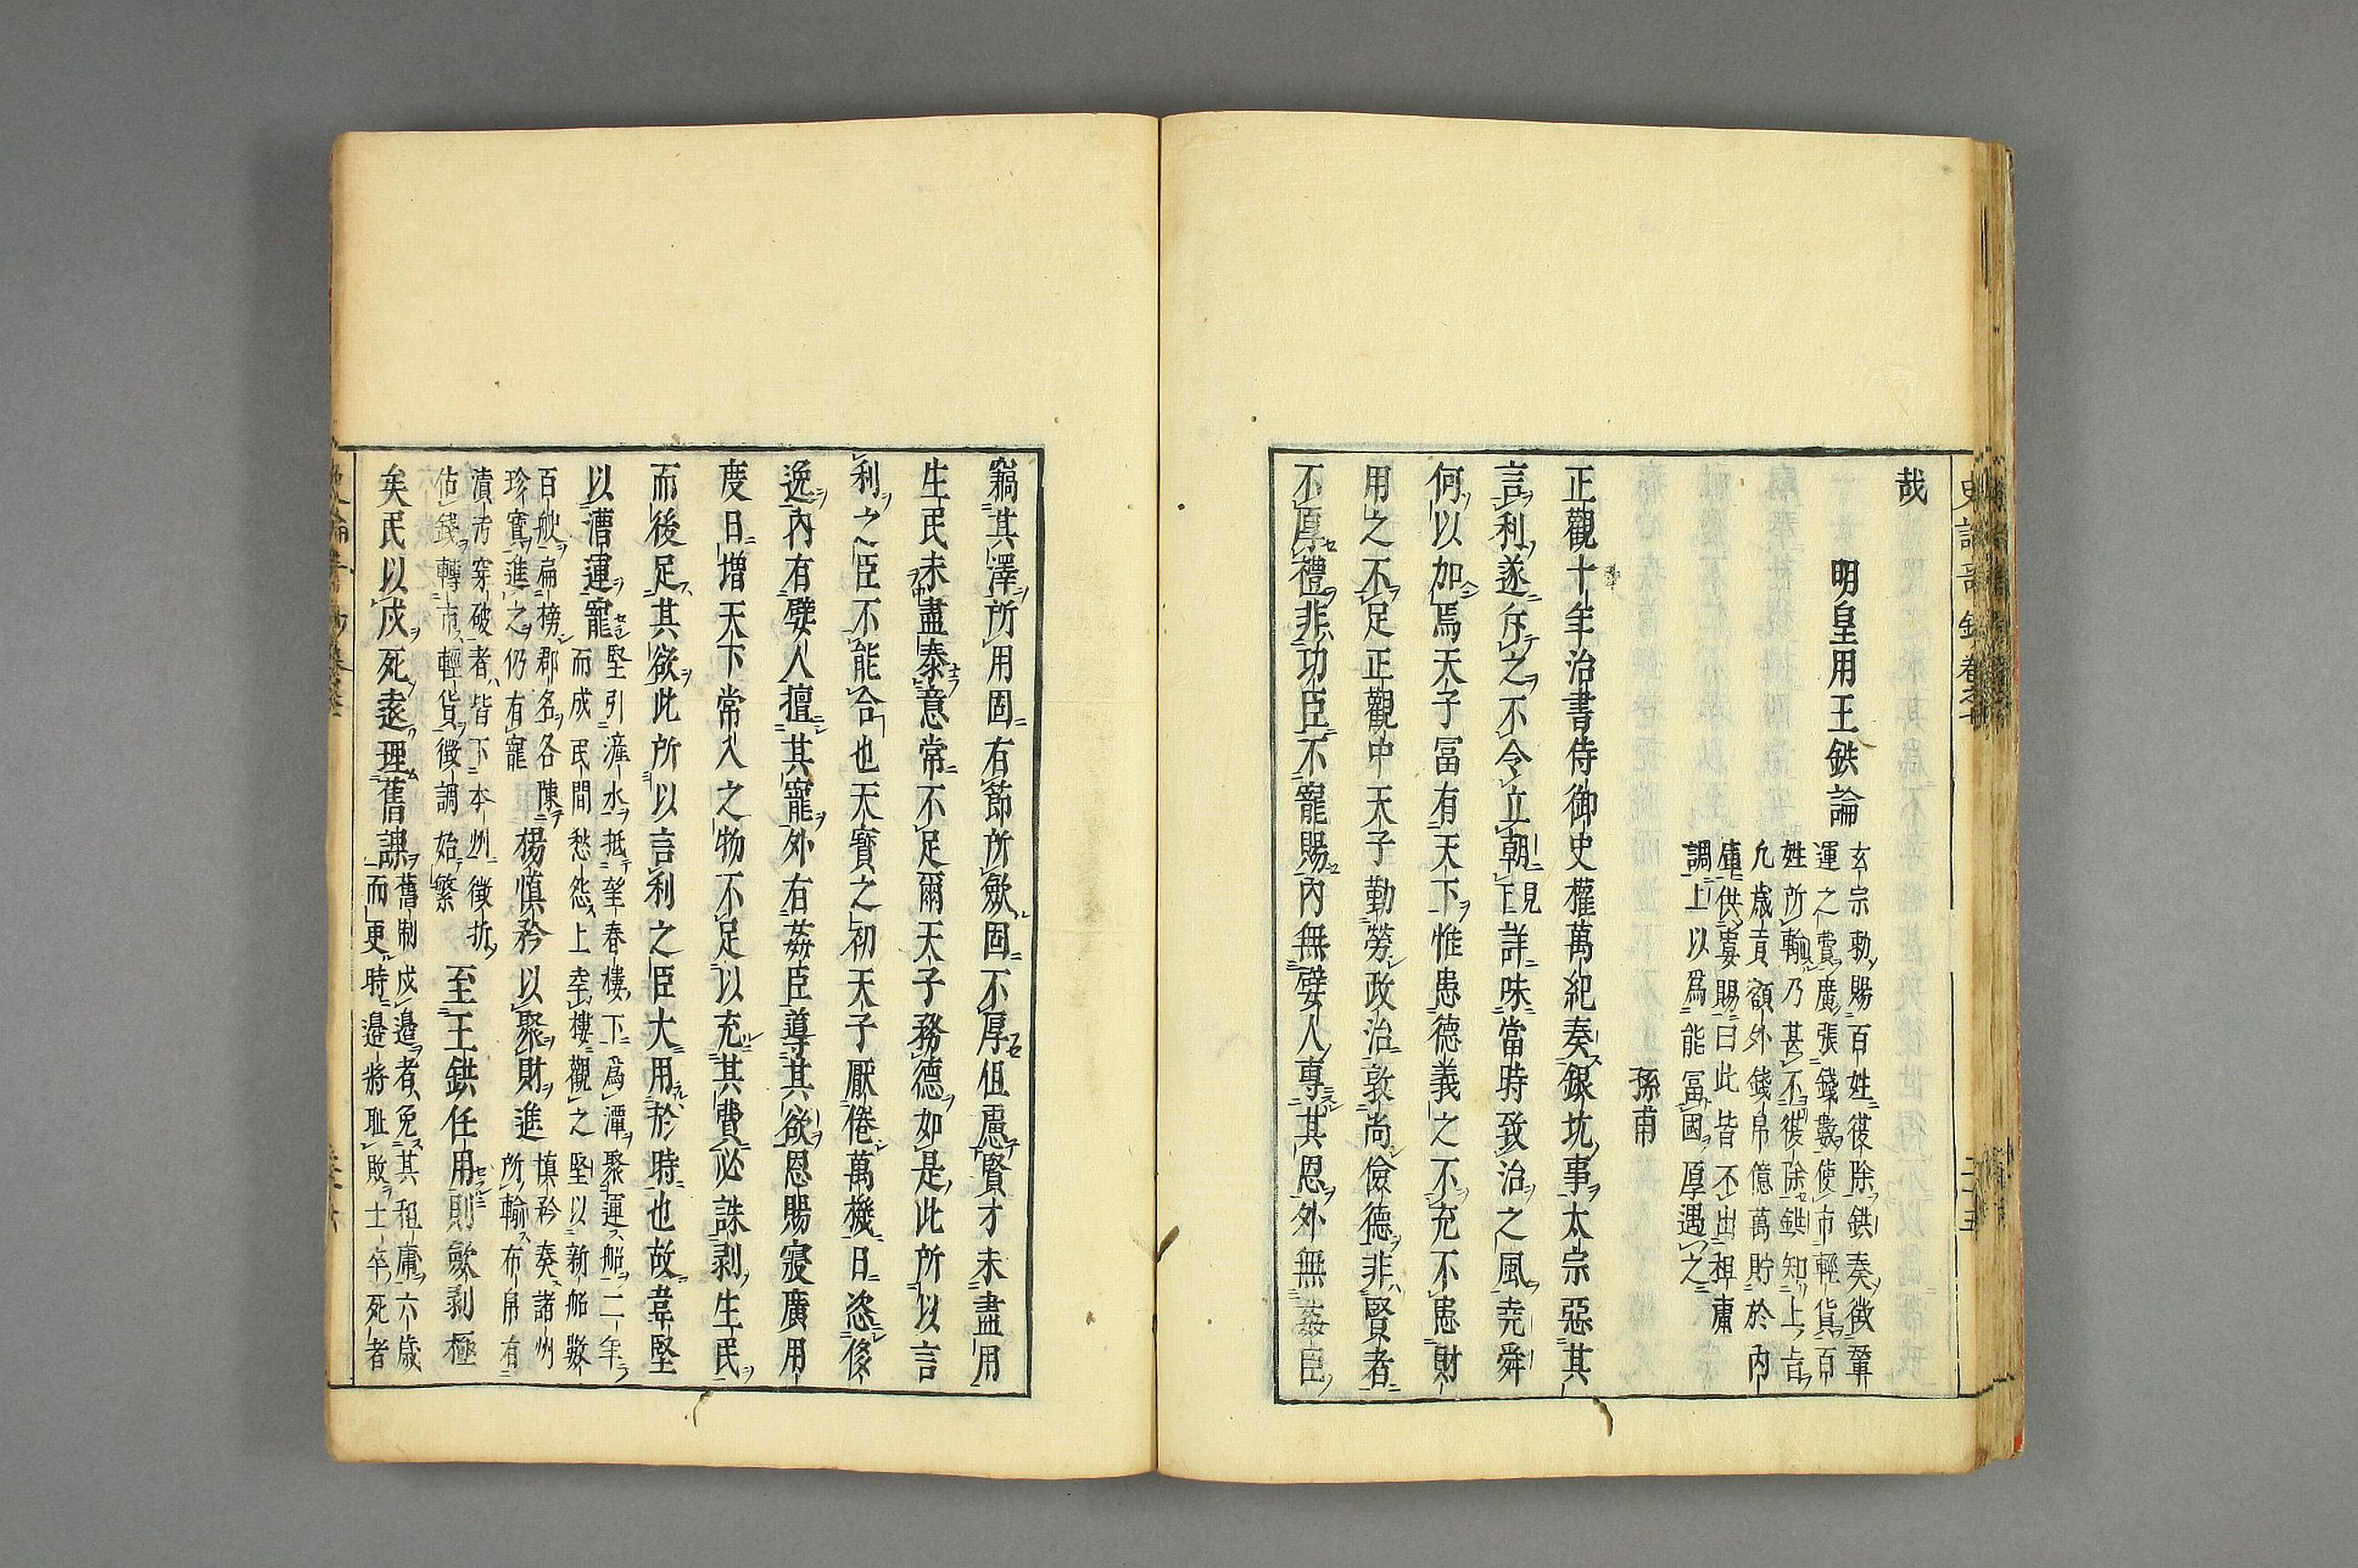 哉
明皇用王鉷論
玄宗勑賜百姓復除鉷奏徵輦
運之費廣張錢數使市輕貨百
姓所輸乃甚不復除鉷知上旨
凢歳貢額外錢帛億萬貯於内
庫供宴賜曰此皆不出租庸
調上以爲能冨國厚遇之
孫甫
正觀十年治書侍御史權萬紀奏銀坑事太宗惡其
言利遂斥之不令立朝詳味當時致治之風尭舜
何以加焉天子冨有天下惟患德義之不充不患財
用之不足正觀中天子勤勞政治敦尚儉德非賢者
不厚禮非功臣不寵賜内無嬖人專其恩外無姦臣
竊其澤所用固有節所歛固不厚但慮賢才未盡用
生民未盡泰意常不足爾天子務德如是此所以言
利之臣不能合也天寳之初天子厭倦萬機日恣侈
逸内有嬖人擅其寵外有姦臣導其欲恩賜寖廣用
度日増天下常入之物不足以充其費必誅剥生民
而後足其欲此所以言利之臣大用於時也故韋堅
以漕運寵
堅引滻水抵望春樓下爲潭聚運船二年
而成民間愁怨上幸樓觀之堅以新船數
百艘扁榜郡名各陳
珍寳進之仍有寵
楊慎矜以聚財進
慎矜奏諸州
所輸布帛有
漬汚穿破者皆下本州徵折
估錢轉市輕貨徵調始繁
至王鉷任用則歛剥極
矣民以戍死遂理舊課
舊制戍邉者免其租庸六歳
而更時邉將耻敗士卒死者
史論奇鈔卷之七
二十五